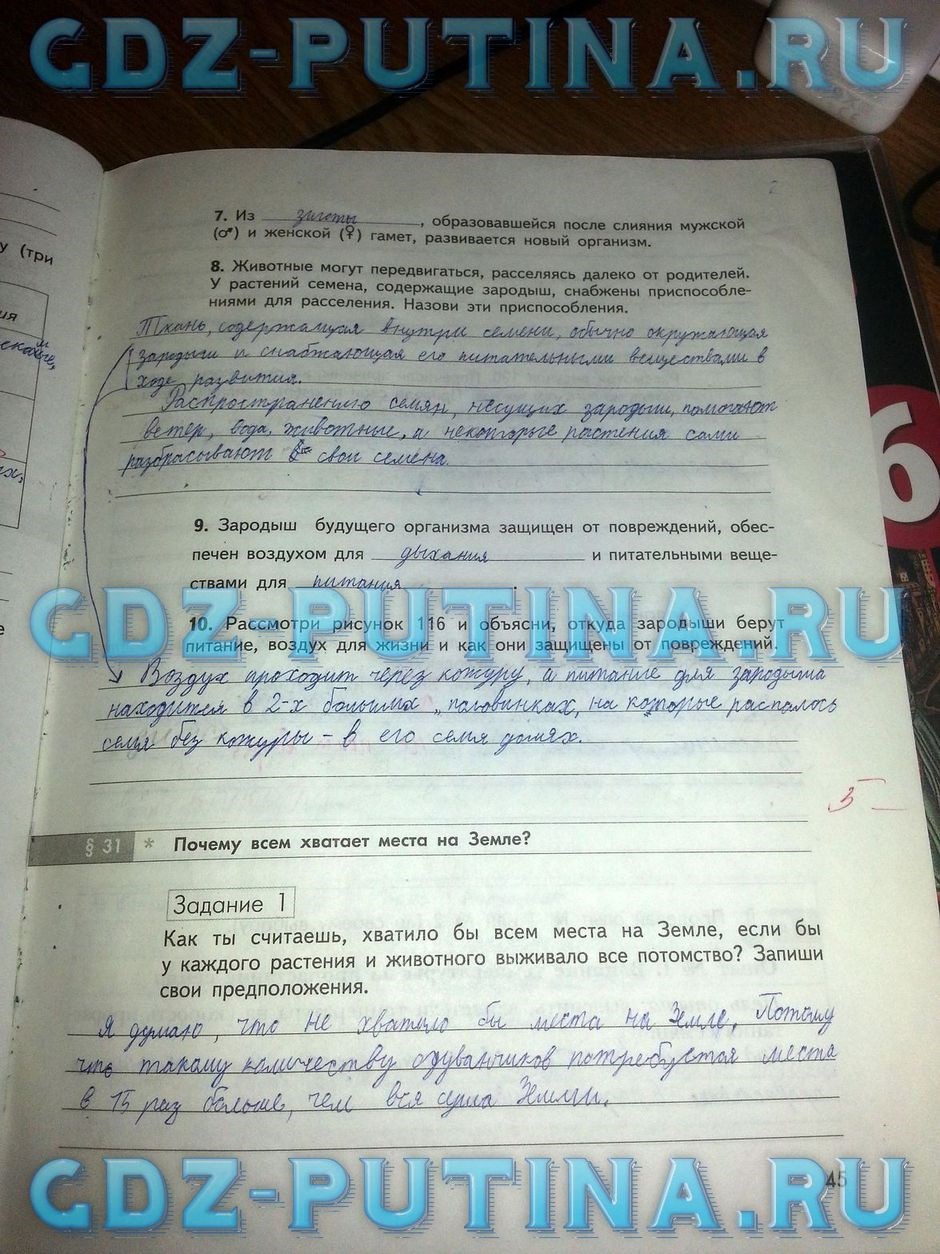 GDZ-PUTINA.RU
7. Из зиготы, образовавшейся после слияния мужской
(♂) и женской (♀) гамет, развивается новый организм.
8. Животные могут передвигаться, расселяясь далеко от родителей.
У растений семена, содержащие зародыш, снабжены приспособле-
ниями для расселения. Назови эти приспособления.
Ткань, содержащая внутри семени, обычно окружающая
зародыш и снабжающая его питательными веществами в
ходе развития.
Распространению семян, несущих зародыш, помогают
ветер, вода, животные, а некоторые растения сами
разбрасывают свои семена.
9. Зародыш будущего организма защищен от повреждений, обес-
печен воздухом для дыхания и питательными веще-
ствами для питания.
GDZ-PUTINA.RU
10. Рассмотри рисунок 116 и объясни, откуда зародыши берут
питание, воздух для жизни и как они защищены от повреждений.
Воздух проходит через кожуру, а питание для зародыша
находится в 2-х больших "половинках, на которые распалось
семя без кожуры - в его семя долях.
§ 31 * Почему всем хватает места на Земле?
Задание 1
Как ты считаешь, хватило бы всем места на Земле, если бы
у каждого растения и животного выживало все потомство? Запиши
свои предположения.
Я думаю, что не хватило бы места на Земле. Потому
что такому количеству одуванчиков потребуется места
в 15 раз больше, чем вся суша Земли.
45
GDZ-PUTINA.RU
у (три
ия
6